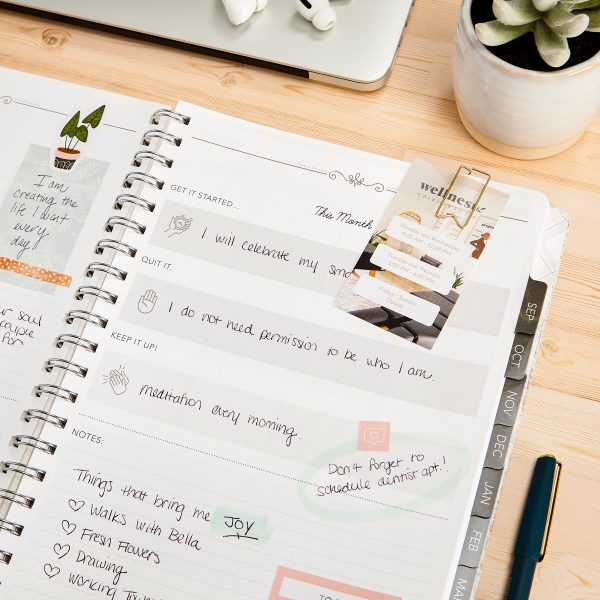 I am
creating the
life I want
every
day
GET IT STARTED...
This Month
I will celebrate my
QUIT IT.
I do not need permission to be who I am.
KEEP IT UP!
meditation every morning.
Don't forget to
schedule dentist apt.!
NOTES:
Things that bring me JOY
Walks with Bella
Fresh Flowers
Drawing
Working
wellness
Monday and Wednesday
8:00 AM - 12:00 PM
Tuesday and Thursday
Closed
SEP
OCT
NOV
DEC
JAN
FEB
MAR
soul
for